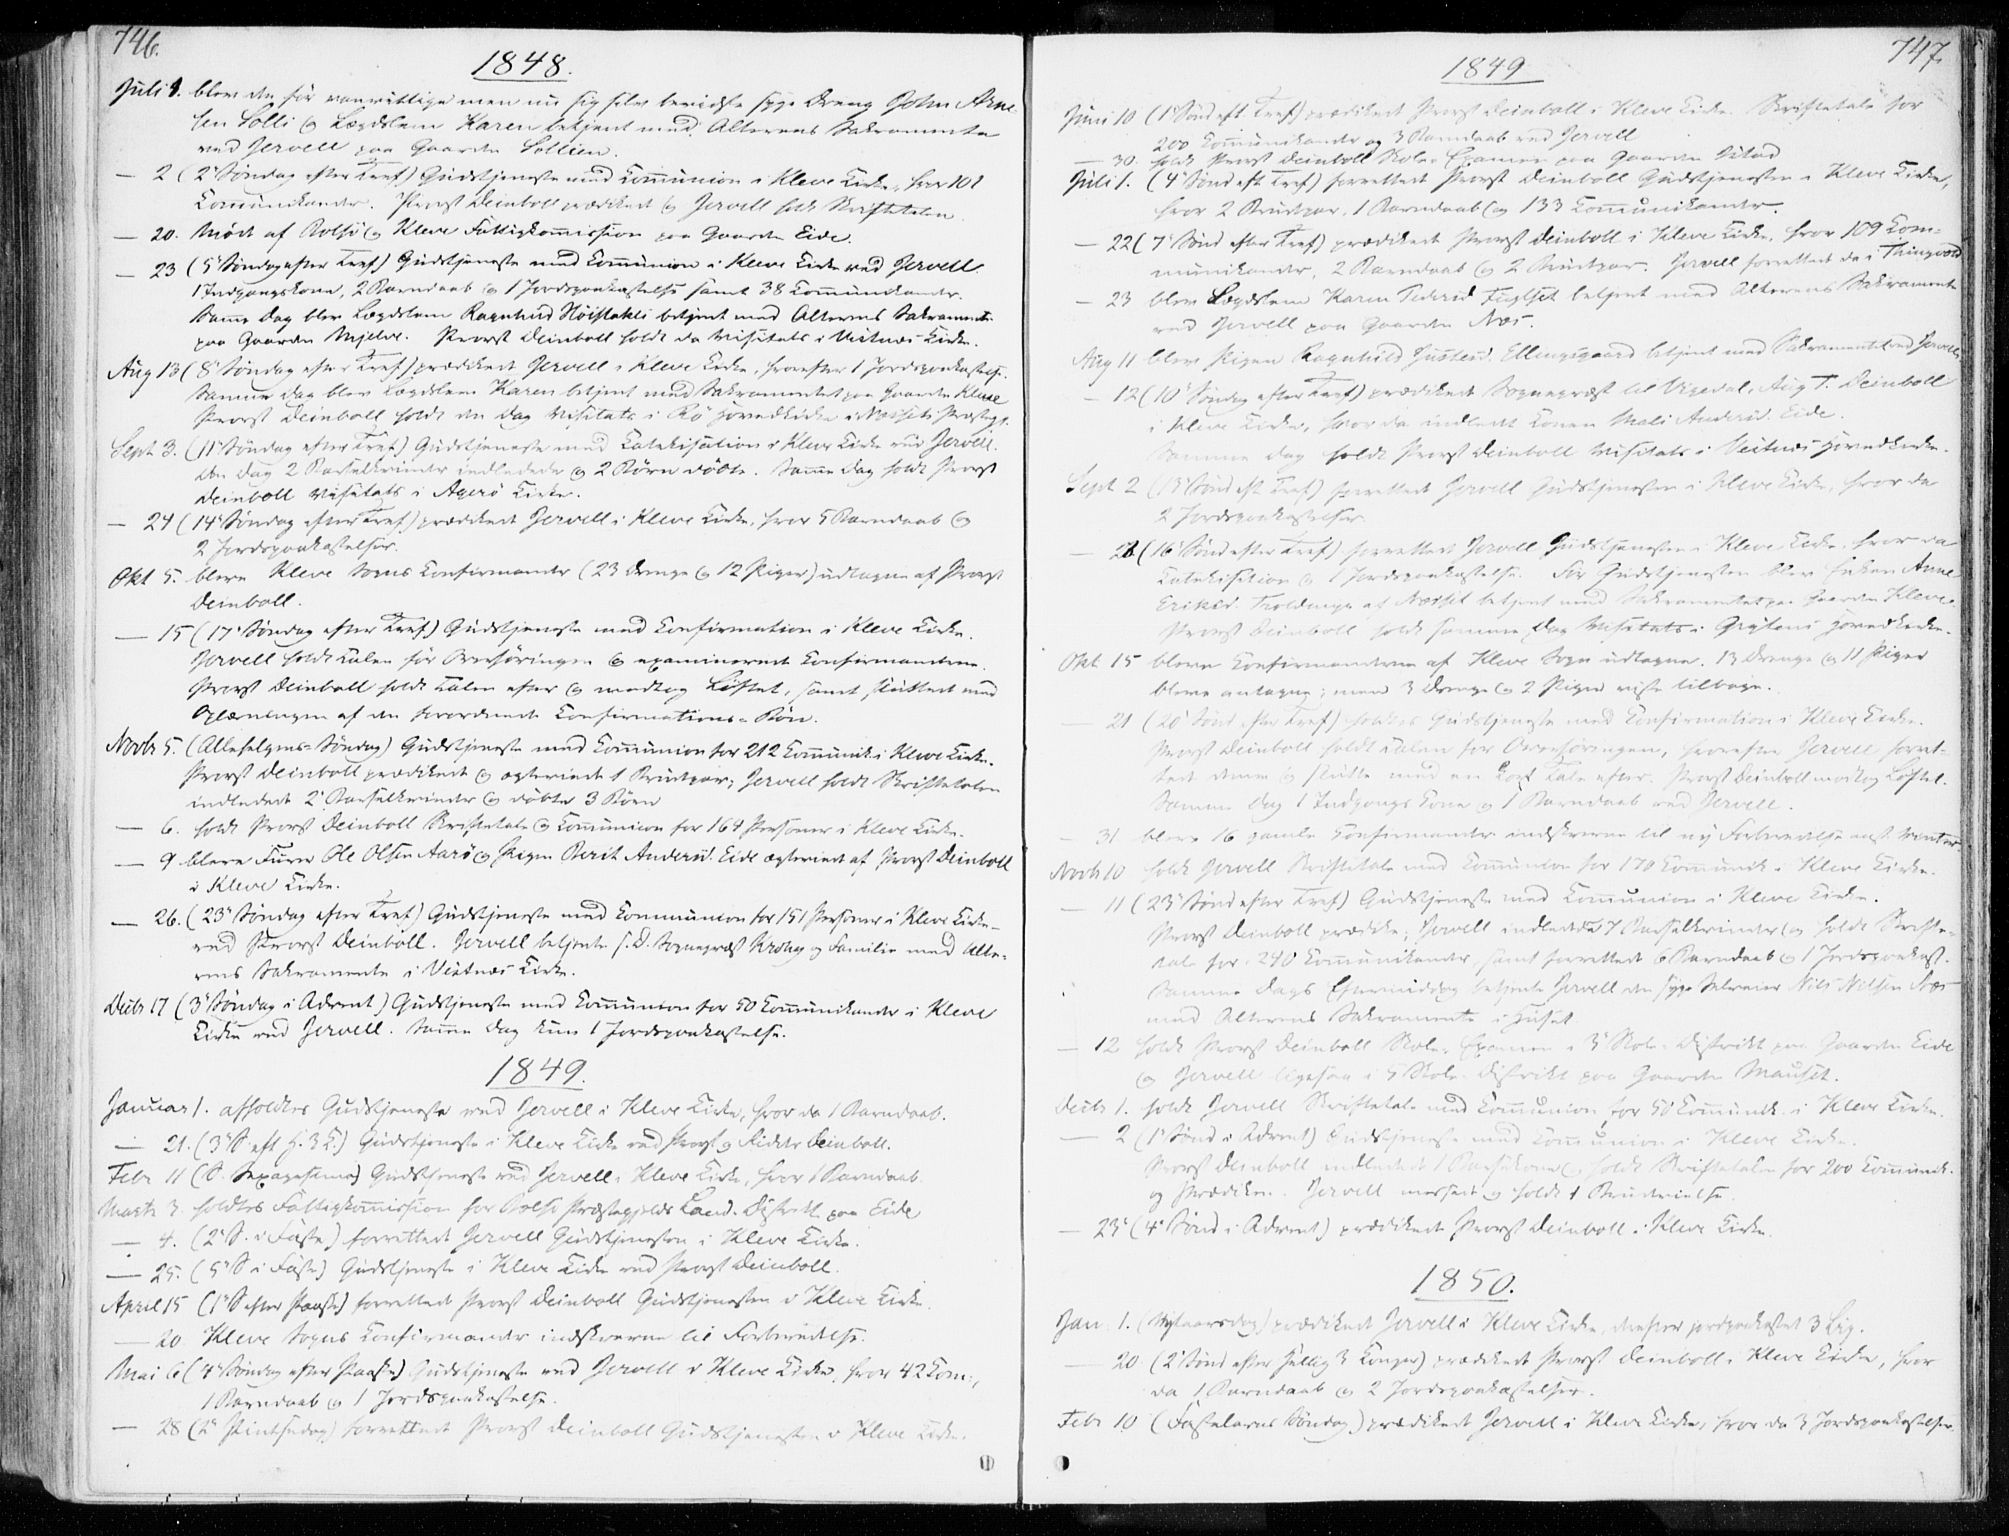 746.
1848.
Juli 1. blev den før vanvittige men nu sig selv bevidste syge Dreng John Arne-
sen Solli og Lægdslem Karen betjent med Alterens Sakramente
ved Jervell paa Gaarden Sollien.
— 2 (2' Søndag efter Tref) Gudstjeneste med Communion i Kleve Kirke, hvor 101
Communikanter. Provst Deinboll prædikede og Jervell holdt Skriftetalen.
— 20. Møde af Bolsø og Kleve Fattigkommission paa Gaarden Eide.
— 23 (5' Søndag efter Tref) Gudstjeneste med Communion i Kleve Kirke ved Jervell.
1 Indgangskone, 2 Barndaab og 1 Jordspaakastelse samt 38 Communikanter.
Samme Dag blev Lægdslem Ragnhild betjent med Alterens Sakramente
paa Gaarden Mjelve. Provst Deinboll holdt da Visitats i Veitnæs Kirke.
Aug 13 (8' Søndag efter Tref) prædikede Jervell i Kleve Kirke, hvorefter 1 Jordspaakastelse.
Samme Dag blev Lægdslem Karen betjent med Sakramentet paa Gaarden Kleve
Provst Deinboll holdt den Dag Visitats i Rø Hovedkirke i
Sept 3. (11' Søndag efter Tref) Gudstjeneste med Katekisation i Kleve Kirke ved Jervell.
den Dag 2 Barselkvinder indledede og 2 Børn døbte. Samme Dag holdt Provst
Deinboll Visitats i Agerø Kirke.
— 24 (14' Søndag efter Tref) prædikede Jervell i Kleve Kirke, hvor 5 Barndaab og
2 Jordspaakastelser.
Okt 5. bleve Kleve Sogns Confirmander (23 Drenge og 12 Piger) udtagne af Provst
Deinboll.
— 15 (17' Søndag efter Tref) Gudstjeneste med Confirmation i Kleve Kirke.
Jervell holdt Talen før Overhøringen og examinerede Confirmanderne.
Provst Deinboll holdt Talen efter og modtog Løftet, samt sluttede med
Oplæsningen af den forordnede Confirmations-Bøn.
Novbr 5. (Allehelgens-Søndag) Gudstjeneste med Communion for 212 Communik. i Kleve Kirke.
Provst Deinboll prædikede og ægteviede 1 Brudepar; Jervell holdt Skriftetalen
indledede 2 Barselkvinder og døbte 3 Børn
— 6. holdt Provst Deinboll Skriftetale og Communion for 164 Personer i Kleve Kirke.
— 9. bleve Furer Ole Olsen Aarø og Pigen Berit Andersd. Eide ægteviet af Provst Deinboll
i Kleve Kirke.
— 26. (23' Søndag efter Tref) Gudstjeneste med Communion for 151 Personer i Kleve Kirke
ved Provst Deinboll. Jervell betjente s. D. Sognepræst Krohg og Familie med Alte-
rens Sakramente i Veitnæs Kirke.
Decbr 17 (3' Søndag i Advent) Gudstjeneste med Communion for 50 Communikanter i Kleve
Kirke ved Jervell. Samme Dag kun 1 Jordspaakastelse.
1849.
Januar 1. afholdtes Gudstjeneste ved Jervell i Kleve Kirke, hvor da 1 Barndaab.
— 21. (3' S. eft H. 3 K.) Gudstjeneste i Kleve Kirke ved Provst og Ridder Deinboll.
Febr 11 (S. Sexagesima) Gudstjeneste ved Jervell i Kleve Kirke, hvor 1 Barndaab.
Marts 3. holdtes Fattigkommission for Bolsø Præstegjelds Land-Distrikt paa Eide
— 4. (2' S. i Faste) forrettede Jervell Gudstjenesten i Kleve Kirke.
— 25. (5' S i Faste) Gudstjeneste i Kleve Kirke ved Provst Deinboll.
April 15 (1' S efter Paaske) forrettede Provst Deinboll Gudstjenesten i Kleve Kirke.
— 20. Kleve Sogns Confirmander indskrevne til Forberedelse.
Mai 6 (4' Søndag efter Paaske) Gudstjeneste ved Jervell i Kleve Kirke, hvor 42 Kom:,
1 Barndaab og 1 Jordspaakastelse.
— 28 (2' Pintsedag) forrettede Provst Deinboll Gudstjenesten i Kleve Kirke.
747.
1849
Juni 10 (1' Sønd eft Tref) prædikede Provst Deinboll i Kleve Kirke. Skriftetale for
200 Communikander og 3 Barndaab ved Jervell
— 30. holdt Provst Deinboll Skole-Examen paa Gaarden Istad
Juli 1. (4' Sønd eft Tref) forrettede Provst Deinboll Gudstjenesten i Kleve Kirke,
hvor 2 Brudepar, 1 Barndaab og 133 Communikander.
— 22 (7' Sønd efter Tref) prædikede Provst Deinboll i Kleve Kirke, hvor 109 Com-
munikander, 2 Barndaab og 2 Brudepar. Jervell forrettede da i Thingvold
— 23 blev Lægdslem Karen Fuglset betjent med Alterens Sakramente
ved Jervell paa Gaarden Næs.
Aug 11 blev Pigen Ragnhild Ellingsgaard betjent med Sakramentet ved Jervell
— 12 (10' Søndag efter Tref) prædikede Sognepræst til Vigedal, Aug T. Deinboll
i Kleve Kirke, hvor da indledt Konen Mali Andersd. Eide.
Samme Dag holdt Provst Deinboll Visitats i Veitnæs Hovedkirke.
Sept 2 (13' Sønd eft Tref) forrettede Jervell Gudstjenesten i Kleve Kirke, hvor da
2 Jordspaakastelser.
— (16' Sønd efter Tref) forrettede Jervell Gudstjenesten i Kleve Kirke, hvor da
Katekisation og 1 Jordspaakastelse. Før Gudstjenesten blev Enken Anne
Eriksd. betjent med Sakramentet paa Gaarden Kleve.
Provst Deinboll holdt samme Dag Visitats i Grytens Hovedkirke.
Okt 15 bleve Confirmanderne af Kleve Sogn udtagne. 13 Drenge og 11 Piger
bleve antagne; men 3 Drenge og 2 Piger viste tilbage.
— 21 (20' Sønd efter Tref) holdtes Gudstjeneste med Confirmation i Kleve Kirke.
Provst Deinboll holdt Talen for Overhøringen, hvorefter Jervell forret-
tede denne og slutte med en kort Tale efter. Provst Deinboll modtog Løftet.
Samme Dag 1 Indgangs Kone og 1 Barndaab ved Jervell.
— 31 bleve 16 gamle Confirmander indskrevne til ny Forberedelse næst Vinter.
Novbr 10 holdt Jervell Skriftetale med Communion for 170 Communik. i Kleve Kirke.
— 11 (23' Sønd efter Tref) Gudstjeneste med Communion i Kleve Kirke.
Provst Deinboll prædike; Jervell indledede 7 Barselkvinder og holdt Skrifte-
tale for 240 Communikander, samt forrettede 6 Barndaab og 1 Jordspaakast.
Samme Dags Eftermiddag betjente Jervell den syge Nils Nilsen
med Alterens Sakramente i Huset
— 12 holdt Provst Deinboll Skole-Examen i 3' Skole-Distrikt paa Gaarden Eide
og Jervell ligesaa i 5 Skole-Distrikt paa Gaarden Mauset.
Decbr 1. holdt Jervell Skriftetale med Communion for 58 Communik. i Kleve Kirke.
— 2 (1' Sønd i Advent) Gudstjeneste med Communion i Kleve Kirke.
Provst Deinboll indledede 1 Barselkone og holdt Skriftetalen for 200 Communik.
og Prædiken. Jervell messede og holdt 1 Brudevielse.
— 23' (4' Sønd i Advent) prædikede Provst Deinboll i Kleve Kirke.
1850.
Jan: 1. (Nytaarsdag) prædikede Jervell i Kleve Kirke, derefter jordpaakastet 3 Lig.
— 20 (2' Sønd efter Hellig 3 Konger) prædikede Provst Deinboll i Kleve Kirke, hvor
da 1 Barndaab og 2 Jordspaakastelser.
Febr 10 (Fastelavns Søndag) prædikede Jervell i Kleve Kirke, hvor da 3 Jordspaakastelser.